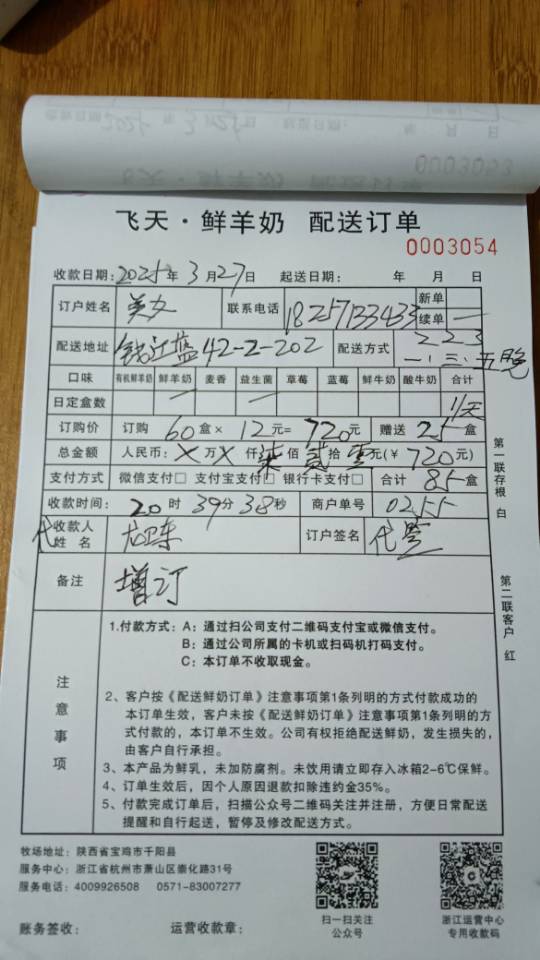 0003053
飞天·鲜羊奶 配送订单
0003054
收款日期：2025年3月27日 起送日期： 年 月 日
订户姓名 美女 联系电话 18257133433 新单
续单 一
配送地址 钱江蓝 42-2-202 配送方式 2 2 3
一·三·五晚
口味 有机鲜羊奶 鲜羊奶 麦香 益生菌 草莓 蓝莓 鲜牛奶 酸牛奶 合计
日定盒数 一 一 1/天
订购价 订购 60 盒× 12 元= 720 元 赠送 25 盒
总金额 人民币：X 万 X 仟 柒 佰 贰 拾 零 元(¥ 720 元)
支付方式 微信支付□ 支付宝支付□ 银行卡支付□ 合计 85 盒
收款时间： 20 时 39 分 38 秒 商户单号 0255
代收款人
姓 名 订户签名 代签
备注 增订
第一联存根 白
第二联客户 红
注意事项
1.付款方式：A：通过扫公司支付二维码支付宝或微信支付。
B：通过公司所属的卡机或扫码机打码支付。
C：本订单不收取现金。
2、客户按《配送鲜奶订单》注意事项第1条列明的方式付款成功的
本订单生效，客户未按《配送鲜奶订单》注意事项第1条列明的方
式付款的，本订单不生效。公司有权拒绝配送鲜奶，发生损失的，
由客户自行承担。
3、本产品为鲜乳，未加防腐剂。未饮用请立即存入冰箱2-6℃保鲜。
4、订单生效后，因个人原因退款扣除违约金35%。
5、付款完成订单后，扫描公众号二维码关注并注册，方便日常配送
提醒和自行起送，暂停及修改配送方式。
牧场地址：陕西省宝鸡市千阳县
服务中心：浙江省杭州市萧山区崇化路31号
服务电话：4009926508 0571-83007277
扫一扫关注
公众号
浙江运营中心
专用收款码
账务签收： 运营收款章：